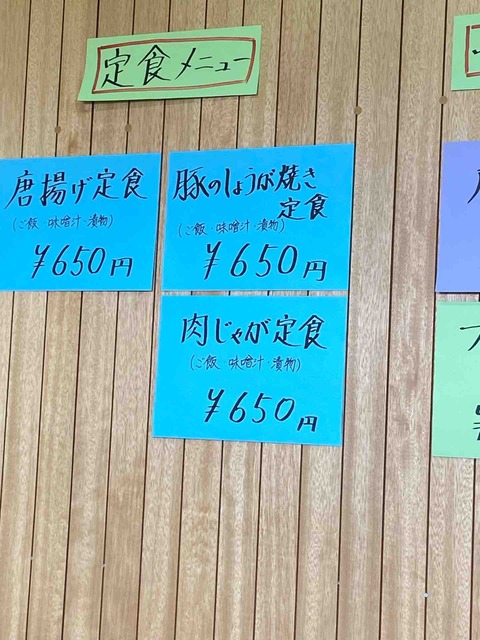 定食メニュー
唐揚げ定食
(ご飯 味噌汁・漬物)
¥650円
豚のしょうが焼き
定食
(ご飯・味噌汁・漬物)
¥650円
肉じゃが定食
(ご飯 味噌汁・漬物)
¥650円